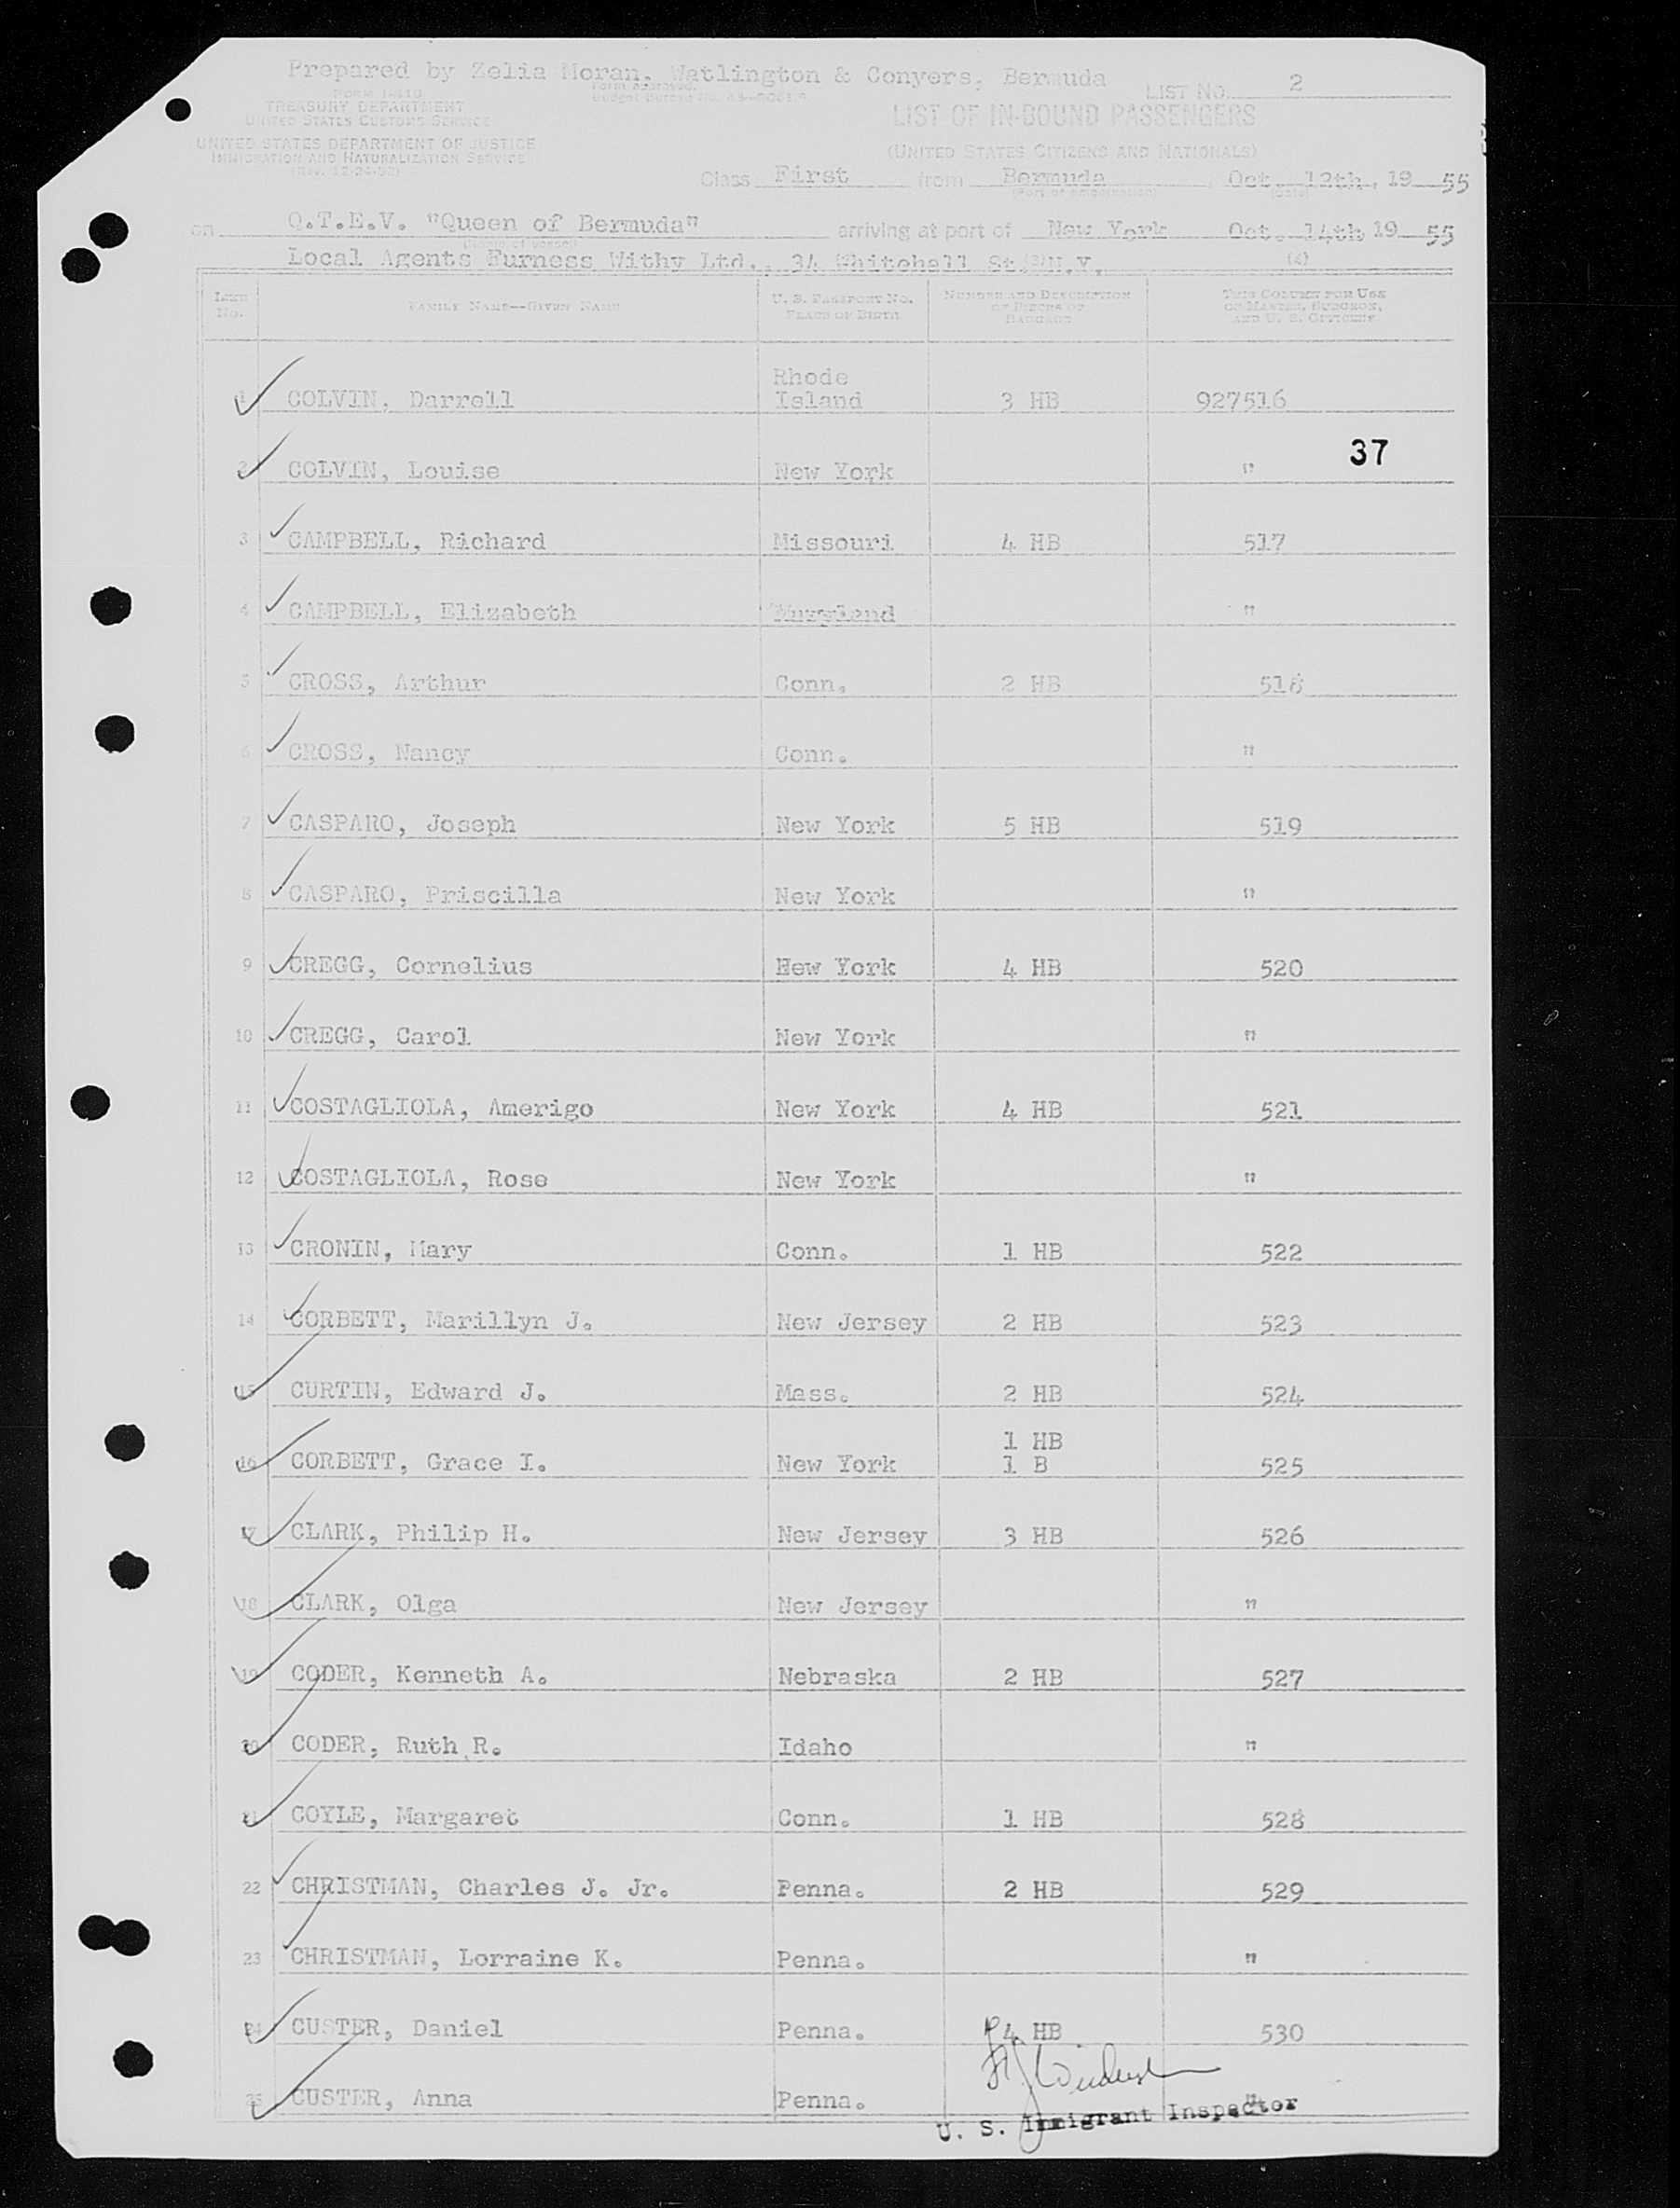 Prepared by Zelia Moran, Watlington & Conyers, Bermuda
LIST NO. 2
FORM I-416
TREASURY DEPARTMENT
UNITED STATES CUSTOMS SERVICE
Form approved.
LIST OF IN-BOUND PASSENGERS
UNITED STATES DEPARTMENT OF JUSTICE
IMMIGRATION AND NATURALIZATION SERVICE
(UNITED STATES CITIZENS AND NATIONALS)
Class First from Bermuda, Oct. 12th, 19 55
(Port of embarkation) (Date)
on Q.T.E.V. "Queen of Bermuda" arriving at port of New York Oct. 14th 19 55
(Name of vessel)
Local Agents Furness Withy Ltd., 34 Whitehall St. N.Y.
(3) (4)
LINE No. FAMILY NAME—GIVEN NAME U. S. PASSPORT NO. PLACE OF BIRTH NUMBER AND DESCRIPTION OF PIECES OF BAGGAGE THIS COLUMN FOR USE OF MASTER, SURGEON, AND U. S. OFFICERS
1 COLVIN, Darrell Rhode Island 3 HB 927516
37
2 COLVIN, Louise New York "
3 CAMPBELL, Richard Missouri 4 HB 517
4 CAMPBELL, Elizabeth Maryland "
5 CROSS, Arthur Conn. 2 HB 518
6 CROSS, Nancy Conn. "
7 CASPARO, Joseph New York 5 HB 519
8 CASPARO, Priscilla New York "
9 CREGG, Cornelius New York 4 HB 520
10 CREGG, Carol New York "
11 COSTAGLIOLA, Amerigo New York 4 HB 521
12 COSTAGLIOLA, Rose New York "
13 CRONIN, Mary Conn. 1 HB 522
14 CORBETT, Marillyn J. New Jersey 2 HB 523
15 CURTIN, Edward J. Mass. 2 HB 524
16 CORBETT, Grace I. New York 1 HB 1 B 525
17 CLARK, Philip H. New Jersey 3 HB 526
18 CLARK, Olga New Jersey "
19 CODER, Kenneth A. Nebraska 2 HB 527
20 CODER, Ruth R. Idaho "
21 COYLE, Margaret Conn. 1 HB 528
22 CHRISTMAN, Charles J. Jr. Penna. 2 HB 529
23 CHRISTMAN, Lorraine K. Penna. "
24 CUSTER, Daniel Penna. 4 HB 530
25 CUSTER, Anna Penna. "
U. S. Immigrant Inspector